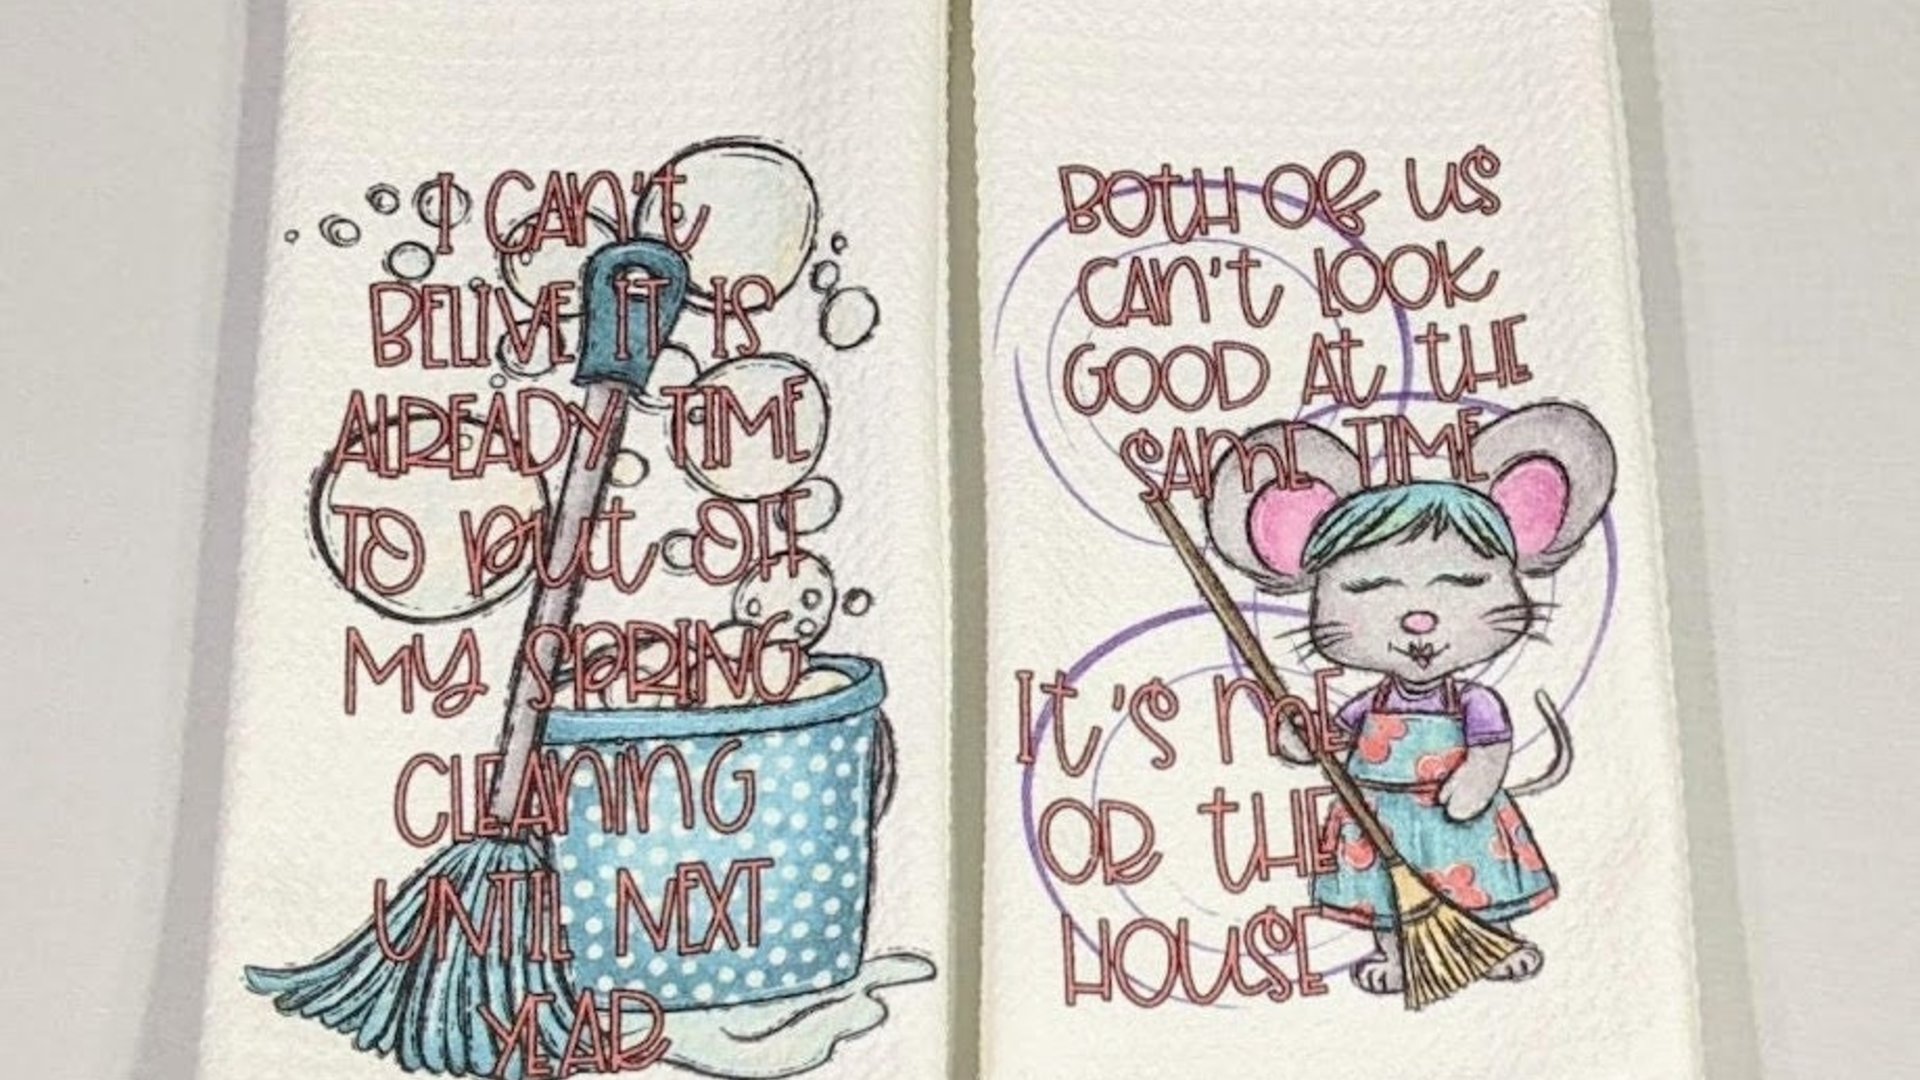 I CAn't
BELIVE IT IS
ALREADY TIME
TO put OFF
MY SPRING
CLEANING
UNTIL NEXT
YEAR
BOTH OF US
CAn't LOOK
GOOD At tHE
SAME TIME
It's ME
OR tHE
HOUSE